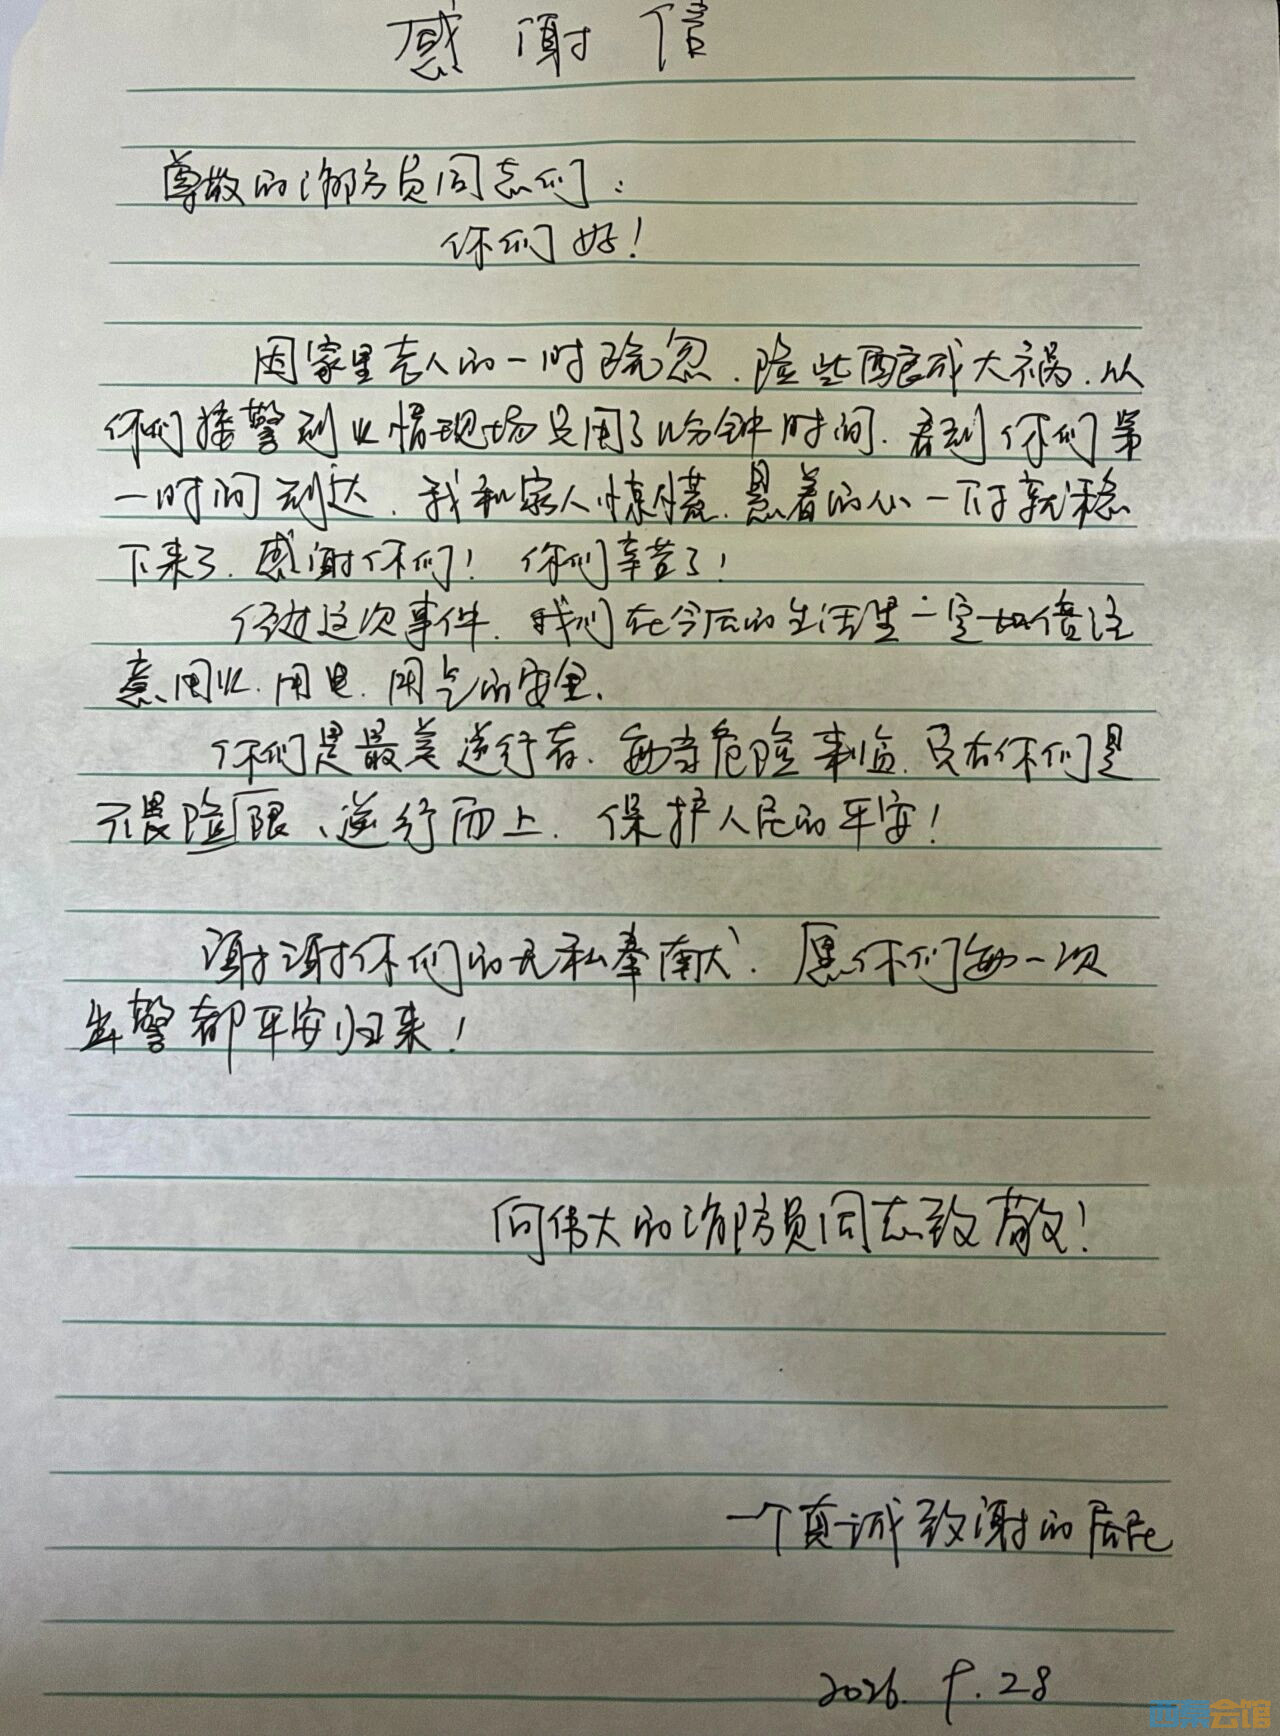 感谢信
尊敬的消防员同志们：
你们好！
因家里老人的一时疏忽、险些酿成大祸、从
你们接警到火情现场只用了几分钟时间、看到你们第
一时间到达、我和家人惊慌、悬着的心一下子就稳
下来了、感谢你们！你们辛苦了！
经过这次事件、我们在今后的生活里一定加倍注
意用火、用电、用气的安全、
你们是最美逆行者、每当危险来临、只有你们是
不畏险阻、逆行而上、保护人民的平安！
谢谢你们的无私奉献、愿你们每一次
出警都平安归来！
向伟大的消防员同志致敬！
一个真诚致谢的居民
2026. 9. 28
西秦会馆